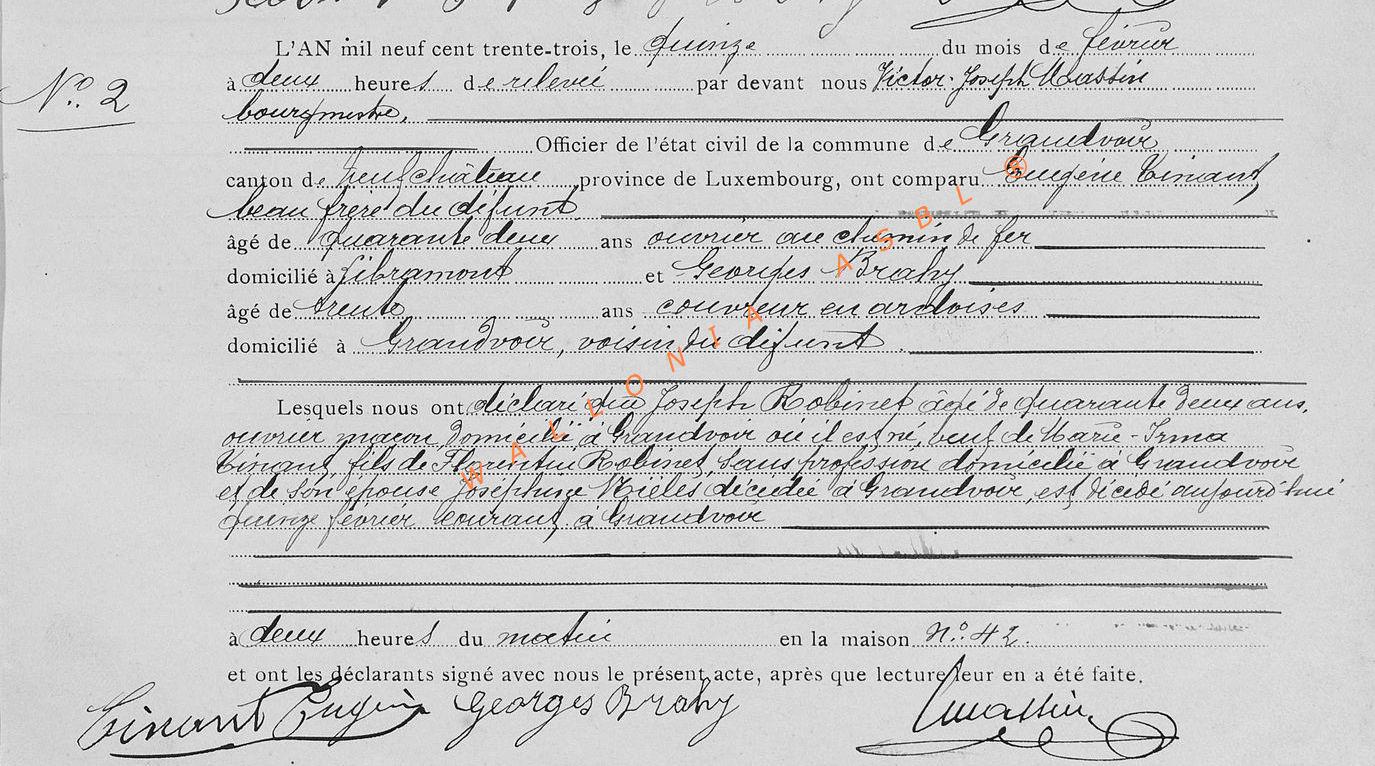 L'AN mil neuf cent trente-trois, le quinze du mois de février
N° 2
à deux heures de relevée par devant nous Victor-Joseph Massin
bourgmestre,
Officier de l'état civil de la commune de Grandvoir
canton de Neufchâteau province de Luxembourg, ont comparu Eugène Tinant,
beau frère du défunt
âgé de quarante deux ans ouvrier au chemin de fer
domicilié à Libramont et Georges Brahy
âgé de trente ans couvreur en ardoises
domicilié à Grandvoir, voisin du défunt.
Lesquels nous ont déclaré que Joseph Robinet âgé de quarante deux ans,
ouvrier maçon, domicilié à Grandvoir où il est né, veuf de Marie-Irma
Tinant, fils de Florentin Robinet, sans profession domicilié à Grandvoir
et de son épouse Joséphine décédée à Grandvoir, est décédé aujourd'hui
quinze février courant, à Grandvoir
à deux heures du matin en la maison N° 42.
et ont les déclarants signé avec nous le présent acte, après que lecture leur en a été faite.
Tinant Eugène Georges Brahy VMassin
WALLONIA ASBL ®